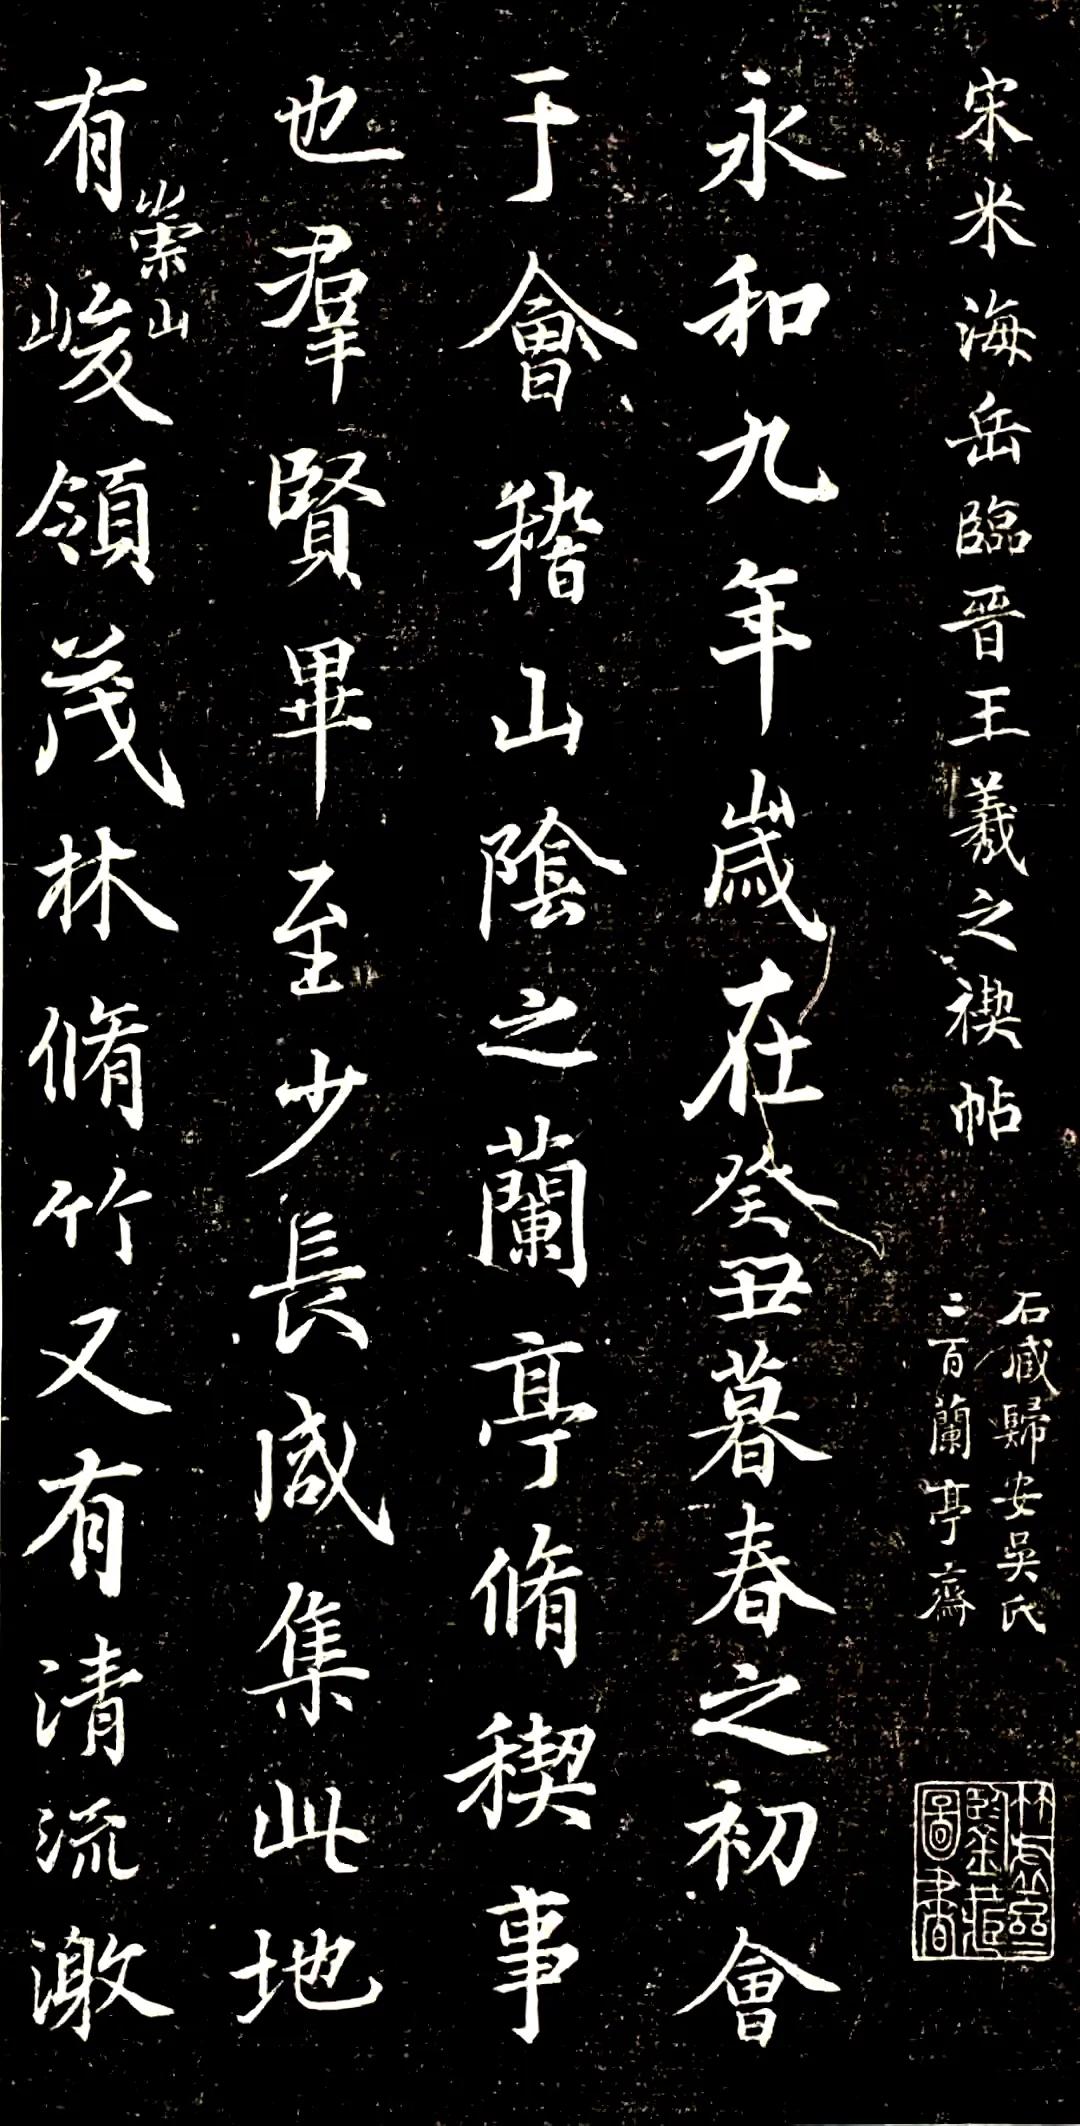 宋米海岳臨晉王羲之禊帖
石藏歸安吳氏
二百蘭亭齋
鑒藏
圖書
永和九年歲在癸丑暮春之初會
于會稽山陰之蘭亭脩稧事
也羣賢畢至少長咸集此地
有崇山峻領茂林脩竹又有清流激